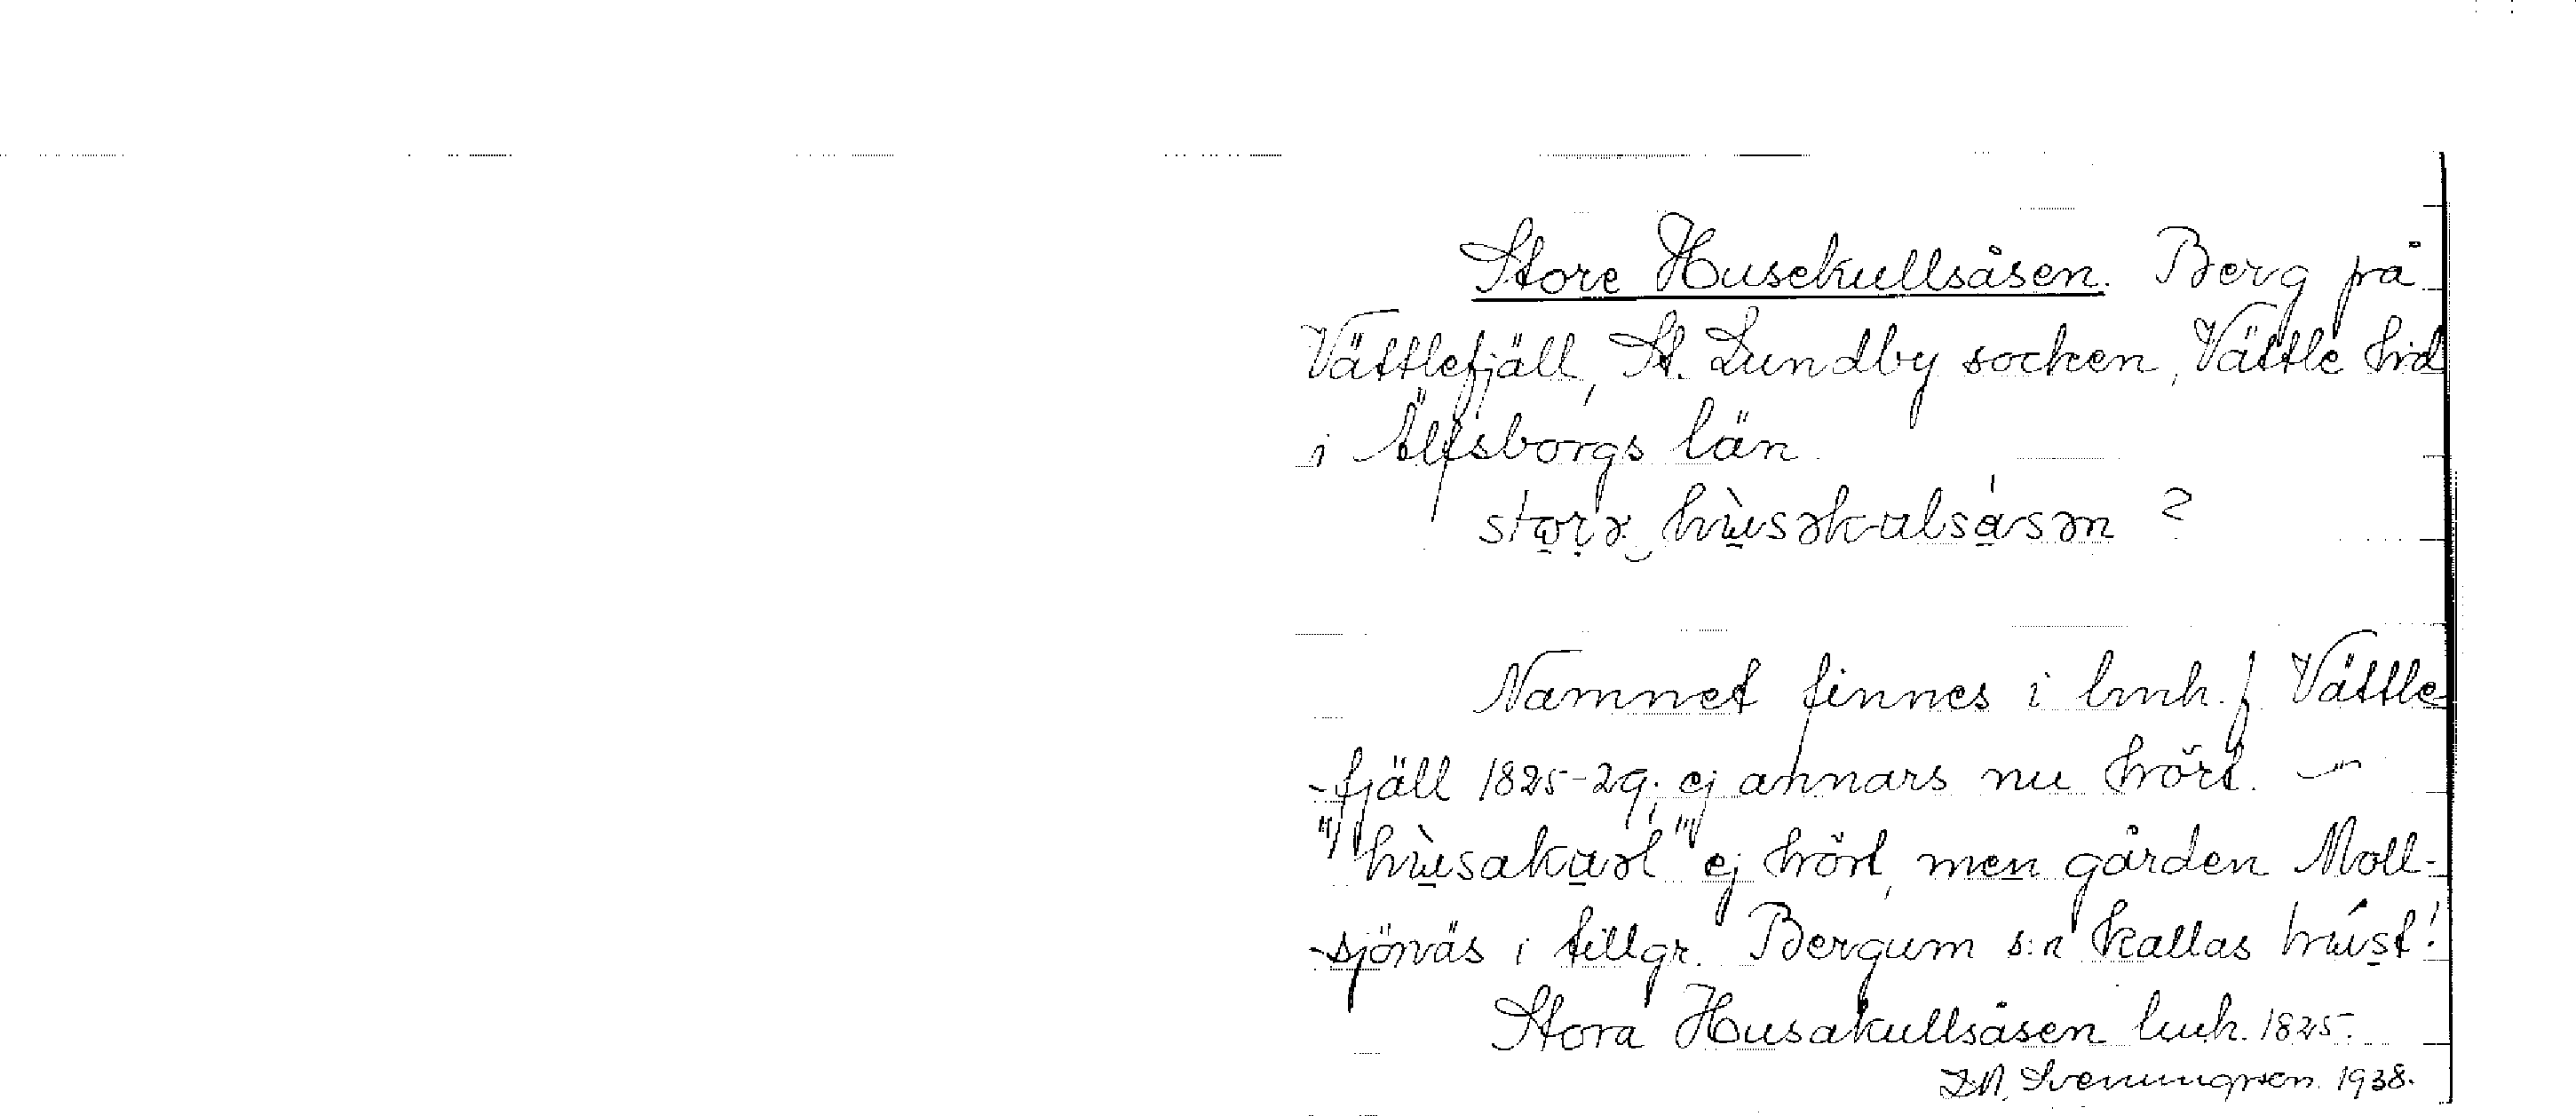 Store Husekullsåsen. Berg på
Vättlefjäll, St. Lundby socken, Vättle hd
i Älfsborgs län.
husəkulsåsən ?
Namnet finnes i lmh. f. Vättle-
-fjäll 1825-29; ej annars nu hört. —
"husakul" ej hört, men gården Moll-
-sjönäs i tillgr. Bergum s:n kallas húst!
Stora Husakullsåsen lmh. 1825.
Svenungsson. 1938.